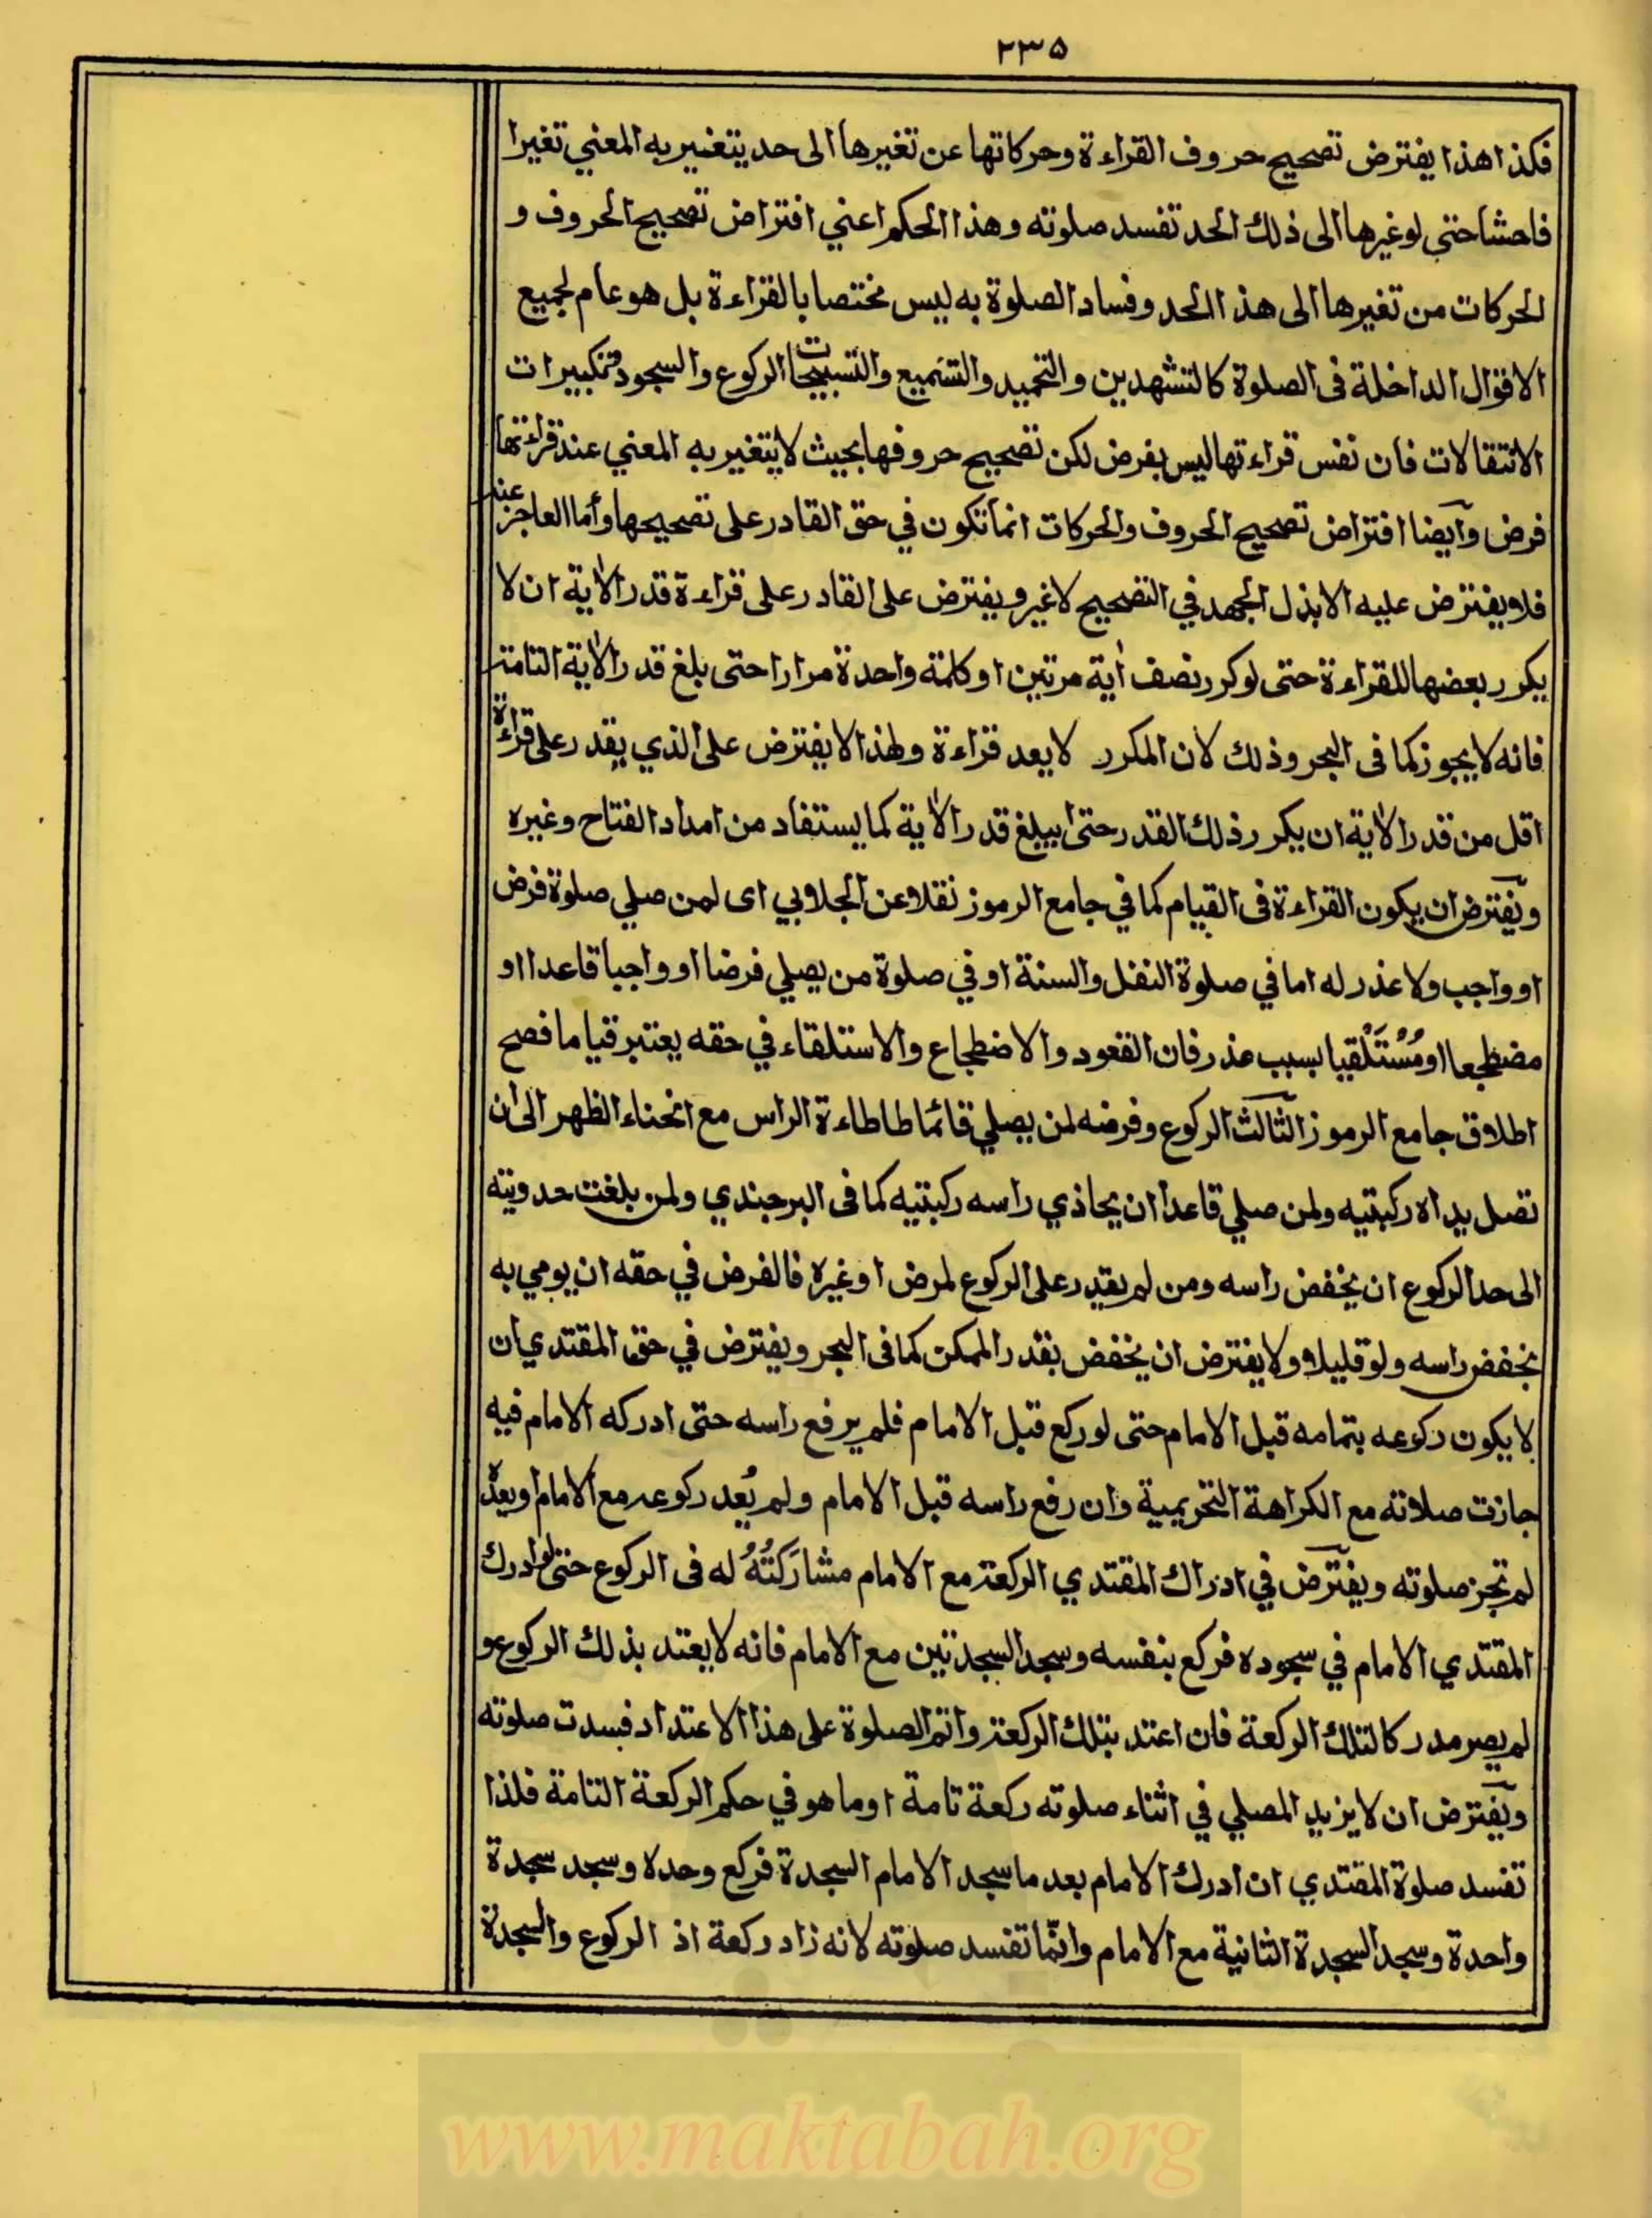 ٢٣٥
فكذا هذا يفترض تصحيح حروف القراءة وحركاتها عن تغيرها الى حد يتغير به المعني تغيرا
فاحشا حتى لوغيرها الى ذلك الحد تفسد صلوته وهذا الحكم اعني افتراض تصحيح الحروف و
الحركات من تغيرها الى هذا الحد وفساد الصلوة به ليس مختصا بالقراءة بل هو عام لجميع
الاقوال الداخلة فى الصلوة كالتشهدين والتحميد والتسميع والتسبيحات الركوع والسجود وتكبيرات
الانتقالات فان نفس قراءتها ليس بفرض لكن تصحيح حروفها بحيث لا يتغير به المعني عند قراءتها
فرض وآيضا افتراض تصحيح الحروف والحركات انما تكون في حق القادر على تصحيحها وأما العاجز عنه
فلا يفترض عليه الا بذل الجهد في التصحيح لا غير ويفترض على القادر على قراءة قدر الاٰية ان لا
يكرر بعضها للقراءة حتى لوكرر نصف اٰية مرتين او كلمة واحدة مرارا حتى بلغ قدر الاٰية التامة
فانه لا يجوز كما فى البحر وذلك لان المكرر لا يعد قراءة ولهذا لا يفترض على الذي يقدر على قراءة
اقل من قدر الاٰية ان يكرر ذلك القدر حتى يبلغ قدر الاٰية كما يستفاد من امداد الفتاح وغيره
ويفترض ان يكون القراءة فى القيام كما في جامع الرموز نقلا عن الجلابي اى لمن صلي صلوة فرض
او واجب ولا عذر له اما في صلوة النفل والسنة او في صلوة من يصلي فرضا او واجبا قاعدا او
مضطجعا او مُسْتَلْقيا بسبب عذر فان القعود والاضطجاع والاستلقاء في حقه يعتبر قياما فصح
اطلاق جامع الرموز الثالث الركوع وفرضه لمن يصلي قائما طاطاءة الراس مع انحناء الظهر الى ان
تصل يداه ركبتيه ولمن صلي قاعدا ان يحاذي راسه ركبتيه كما فى البرجندي ولمن بلغت حدوبته
الى حد الركوع ان يخفض راسه ومن لم يقدر على الركوع لمرض او غيره فالفرض في حقه ان يومي به
بخفض راسه ولو قليلا ولا يفترض ان يخفض بقدر الممكن كما فى البحر ويفترض في حق المقتدي ان
لا يكون ركوعه بتمامه قبل الامام حتى لو ركع قبل الامام فلم يرفع راسه حتى ادركه الامام فيه
جازت صلاته مع الكراهة التحريمية وان رفع راسه قبل الامام ولم يُعد ركوعه مع الامام او بعده
لم تجز صلوته ويفترض في ادراك المقتدي الركعة مع الامام مشارَكتُهُ له فى الركوع حتى لو ادرك
المقتدي الامام في سجوده فركع بنفسه وسجد السجدتين مع الامام فانه لا يعتد بذلك الركوع و
لم يصر مدركا لتلك الركعة فان اعتد بتلك الركعة واتم الصلوة على هذا الاعتداد فسدت صلوته
ويفترض ان لا يزيد المصلي في اثناء صلوته ركعة تامة او ما هو في حكم الركعة التامة فلذا
تفسد صلوة المقتدي ان ادرك الامام بعد ما سجد الامام السجدة فركع وحده وسجد سجدة
واحدة وسجد السجدة الثانية مع الامام وانّما تفسد صلوته لانه زاد ركعة اذ الركوع والسجدة
www.maktabah.org